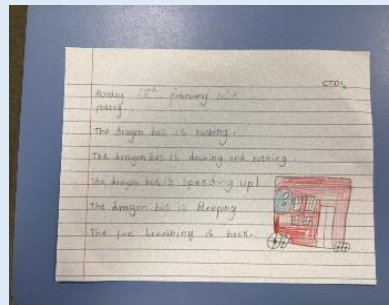 CTDL
Monday February
poetry
The dragon bus is rushing.
The dragon bus is dashing and rushing.
The dragon bus is speeding up!
The dragon bus is bleeping
The fire breathing is back.